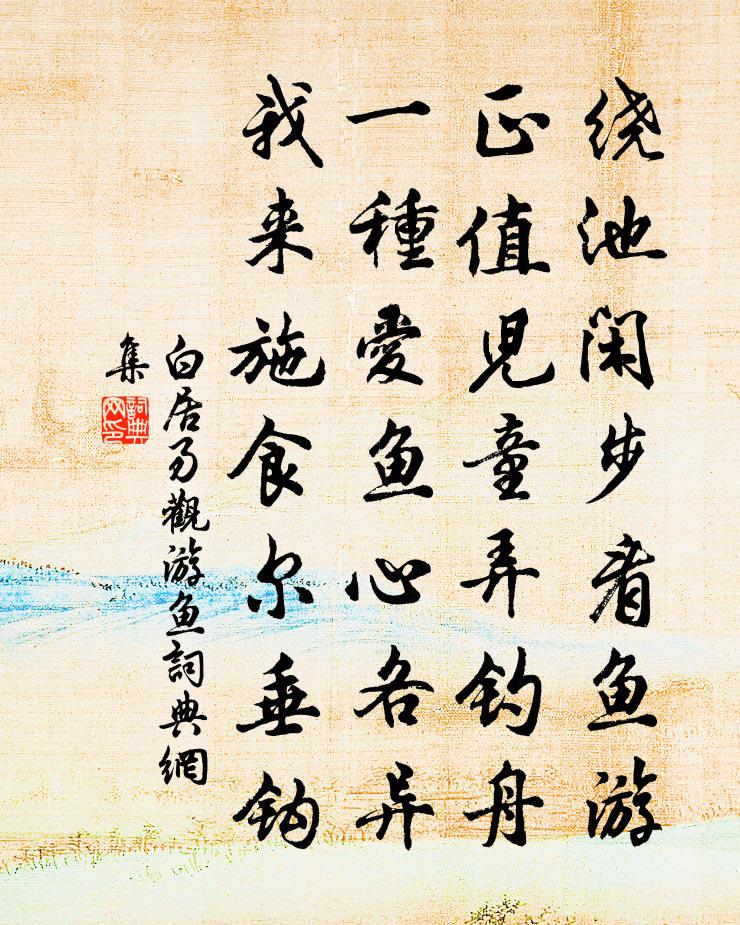 绕池闲步看鱼游
正值児童弄钓舟
一種愛鱼心各异
我来施食尔垂钩
白居易觀游鱼詞典網
集
詞典网印